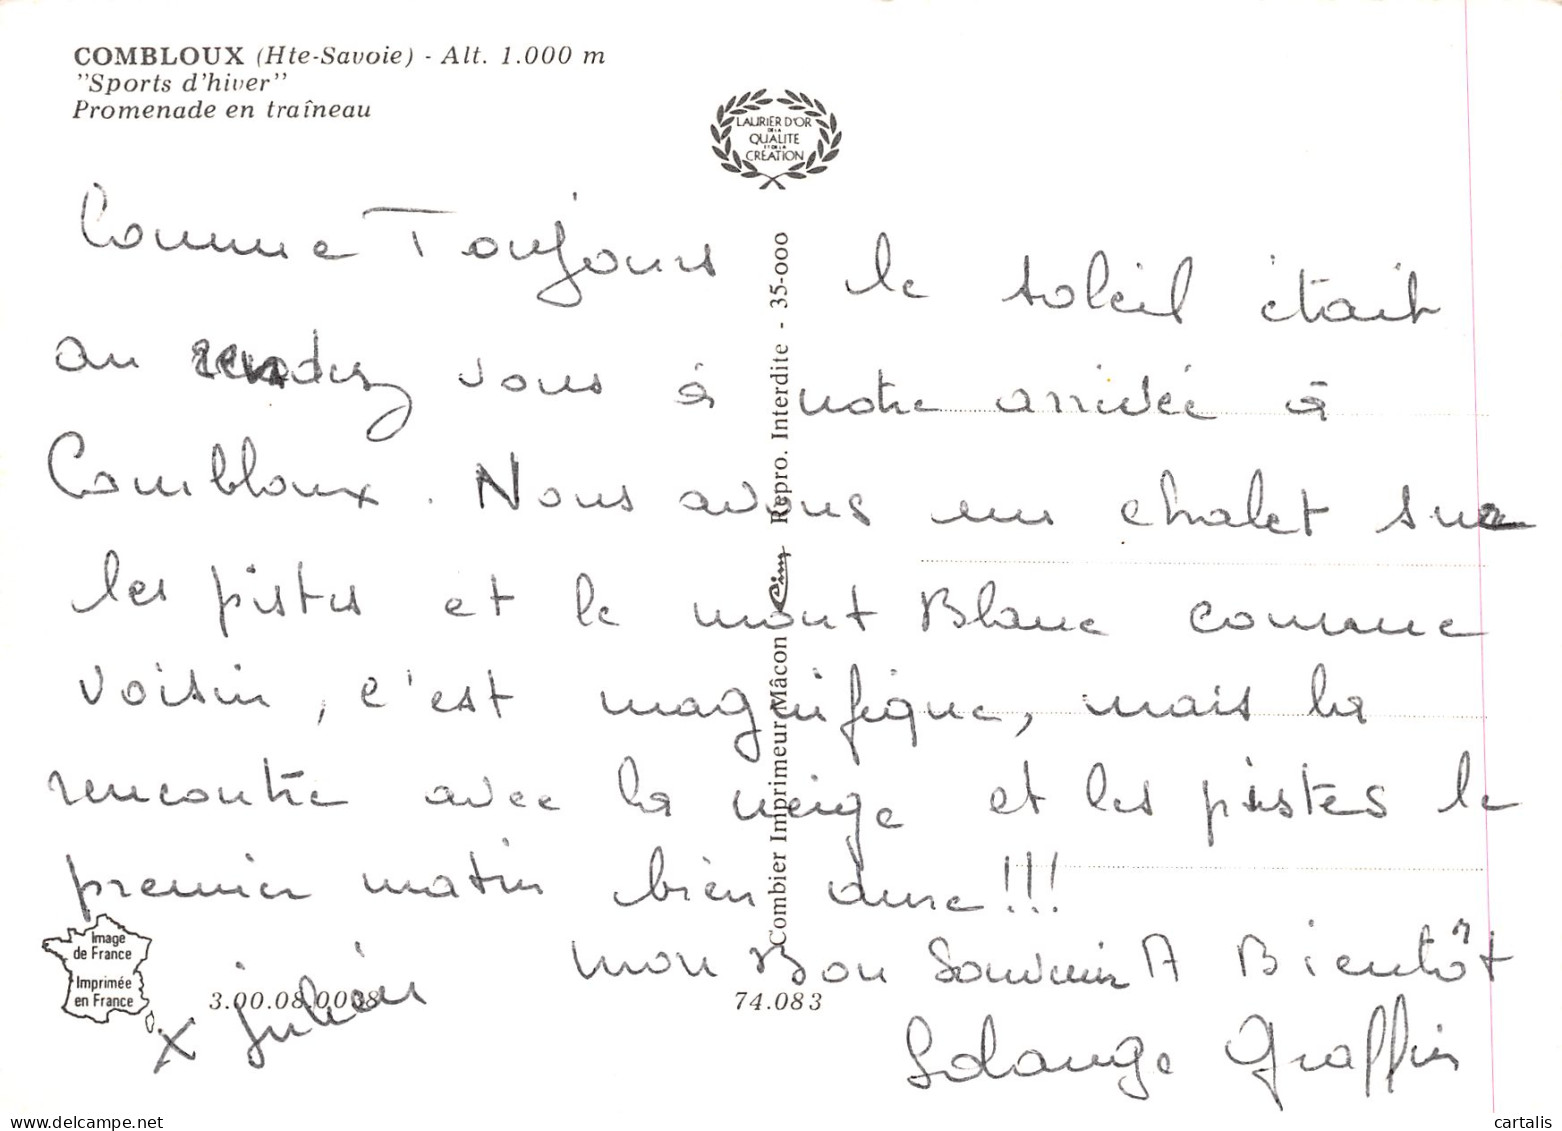 COMBLOUX (Hte-Savoie) - Alt. 1.000 m
"Sports d'hiver"
Promenade en traîneau
LAURIER D'OR
DE LA
QUALITE
ET DE LA
CREATION
Comme Toujours le soleil était
au rendez vous à notre arrivée à
Combloux. Nous avons un chalet sur
les pistes et le mont Blanc comme
voisin, c'est magnifique, mais la
rencontre avec la neige et les pistes le
premier matin bien dure !!!
mon Bon Souvenir A Bientôt
Solange Graffin
x Julien
Combier Imprimeur Mâcon Cim Repro. Interdite - 35-000
Image
de France
Imprimée
en France
3.00.08.0088
74.083
www.delcampe.net
cartalis